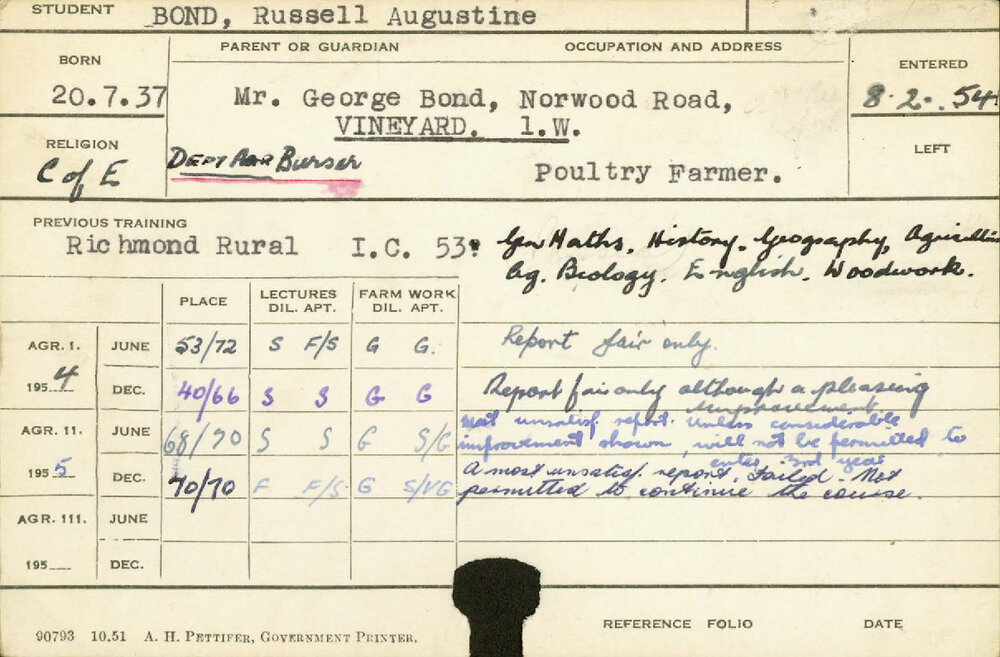 STUDENT BOND, Russell Augustine
BORN PARENT OR GUARDIAN OCCUPATION AND ADDRESS ENTERED
20.7.37 Mr. George Bond, Norwood Road, 8.2.54
VINEYARD. 1.W.
RELIGION LEFT
C of E DEPT AGR Bursar Poultry Farmer.
PREVIOUS TRAINING
Richmond Rural I.C. 53: Gen Maths, History, Geography, Agriculture
Ag. Biology. English. Woodwork.
PLACE LECTURES FARM WORK
DIL. APT. DIL. APT.
AGR. 1. JUNE 53/72 S F/S G G. Report fair only.
1954 DEC. 40/66 S S G G Report fair only although a pleasing
improvement
AGR. 11. JUNE 68/70 S S G S/G Most unsatisf. report. Unless considerable
improvement shown will not be permitted to
enter 3rd year
1955 DEC. 70/70 F F/S G S/VG A most unsatisf. report. Failed. Not
permitted to continue the course.
AGR. 111. JUNE
195 DEC.
REFERENCE FOLIO DATE
90793 10.51 A. H. PETTIFER, GOVERNMENT PRINTER.